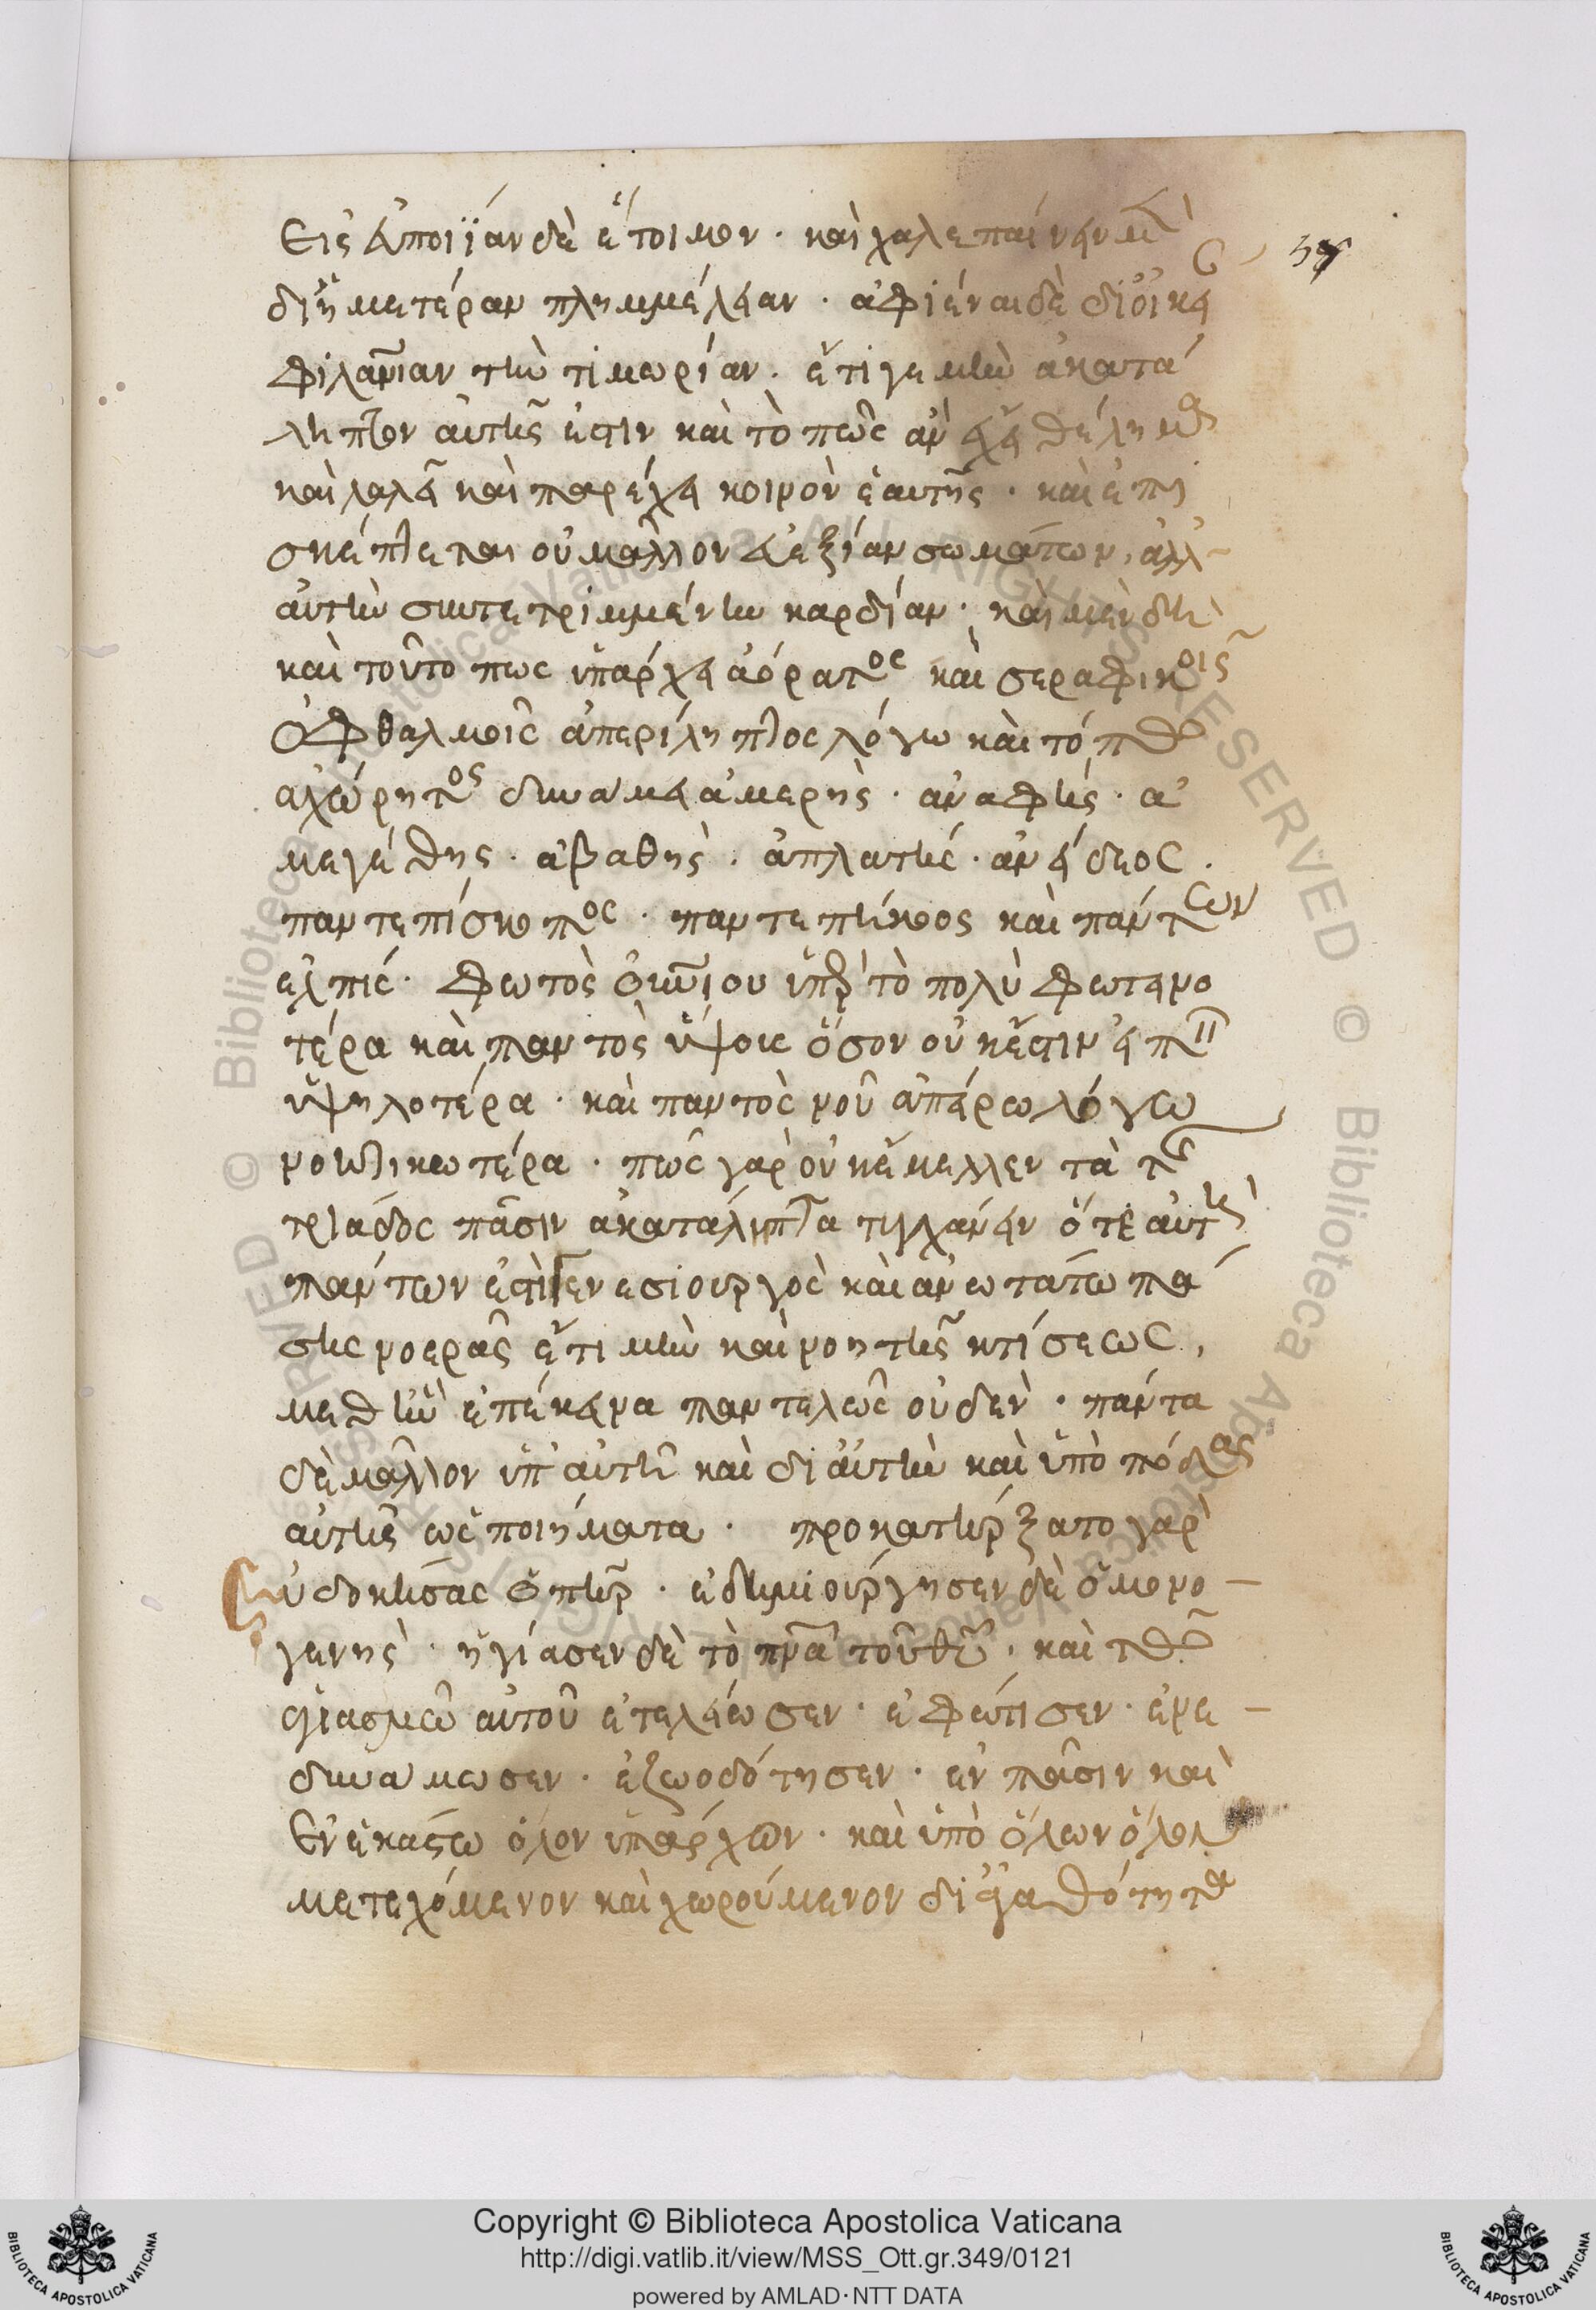 εἰς εὔνοιαν δὲ ἕτοιμον· καὶ χαλεπαίνειν μὲν
57
δι' ἡμετέραν πλημμέλειαν· ἀφιέναι δὲ δι' οἰκεί
φιλανίαν τὴν τιμωρίαν· ἔτι γε μὴν ἀκατά
ληπτον αὐτῆς ἐστιν καὶ τὸ πῶς ἂν
καὶ λαλεῖ καὶ παρέχει ἑαυτῆς· καὶ ἐπι
σκέπτεται οὐ μᾶλλον εὐεξίαν σωμάτων, ἀλλ
αὐτὴν συντετριμμένην καρδίαν· καὶ μὲν δὴ
καὶ τοῦτό πως ὑπάρχει ἀόρατος καὶ σεραφικοῖς
ὀφθαλμοῖς ἀπερίληπτος λόγω καὶ τόπω
ἀχώρητος δυνάμει ἀμερής· ἀναφής· ἀ
μεγέθης· ἀβαθής· ἀπλατής· ἀνείδεος·
παντεπίσκοπος· παντεπήκοος καὶ πάντων
ἐλπίς· φωτὸς οἰκείου ὑπὲρ τὸ πολὺ φωτεινο
τέρα καὶ παντὸς ὕψους ὅσον οὐκ ἔστιν εἰπεῖν
ὑψηλοτέρα· καὶ παντὸς νοῦ ἀπείρω λόγω
νοητικωτέρα· πῶς γὰρ οὐκ ἔμελλεν τὰ τῆς
τριάδος πᾶσιν ἀκατάληπτα τυγχάνειν ὅτε αὐτὴ
πάντων ἐστὶ γενεσιουργὸς καὶ ἀνωτάτω πά
σης νοερᾶς ἔτι μὴν καὶ νοητῆς κτίσεως,
μεθ' ἣν ἐπέκεινα παντελῶς οὐδέν· πάντα
δὲ μᾶλλον ὑπ' αὐτὴν καὶ δι' αὐτὴν καὶ ὑπὸ πόδας
αὐτῆς ὡς ποιήματα· προκατήρξατο γὰρ
εὐδοκήσας ὁ πηρ· ἐδημιούργησεν δὲ ὁ μονο
γενής· ἡγίασεν δὲ τὸ πνα τοῦ θυ· καὶ τῶ
ἁγιασμῶ αὐτοῦ ἐτελείωσεν· ἐφώτισεν· ἐνε
δυνάμωσεν· ἐζωοδότησεν· ἐν πᾶσιν καὶ
ἐν ἑκάστω ὅλον ὑπάρχων· καὶ ὑπὸ ὅλων ὅλον
μετεχόμενον καὶ χωρούμενον δι' ἀγαθότητα
Copyright © Biblioteca Apostolica Vaticana
http://digi.vatlib.it/view/MSS_Ott.gr.349/0121
powered by AMLAD·NTT DATA